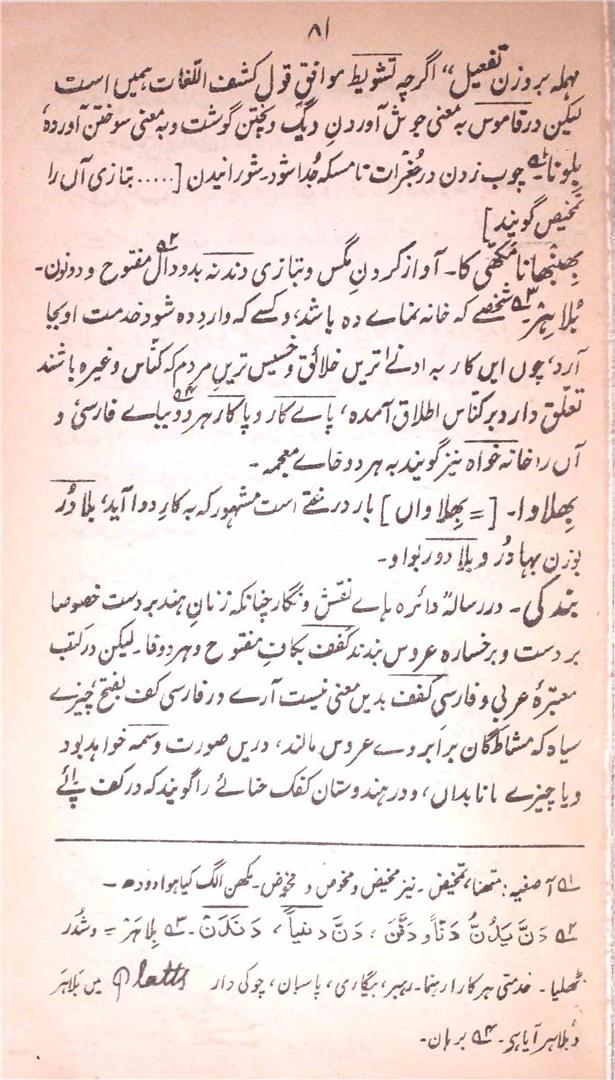 ۸۱
مہملہ بر وزن تفعیل“ اگرچہ تشویط موافق قول کشف اللغات ہمیں است
لیکن در قاموس بہ معنی جوش آوردنِ دیگ و پختن گوشت و بہ معنی سوختن آوردہ
بلونا۔ چوب زدن در جُغرات تا مسکہ جُدا شود۔ شورانیدن [..... بتازی آں را
تمخیض گویند]
بھنبھنانا مکھی کا۔ آواز کردنِ مگس و بتازی دندنہ بدو دال مفتوح و دو نون۔
بُلاہِر۔ شخصے کہ خانہ نماے دہ باشد، و کسے کہ وارد دہ شود خدمت او بجا
آرد، چوں ایں کار بہ ادنےٰ ترین خلائق و خسیس ترینِ مردم کہ کنّاس وغیرہ باشند
تعلّق دارد بر کنّاس اطلاق آمدہ، پاے کار و پاکار ہر دو بباے فارسی و
آں را خانہ خواہ نیز گویند بہ ہر دو خاے معجمہ۔
بھلاوا۔ [= بھلاواں] بار درختے است مشہور کہ بہ کارِ دوا آید، بلادُر
بوزن بہادُر و بلادور بواو۔
بندکی۔ در رسالہ دائرہ ہاے نقش و نگار چنانکہ زنانِ ہند بر دست خصوصا
بر دست و بر رخسارہ عروس بندند کفف بکافِ مفتوح و ہر دو فا۔ لیکن در کتب
معتبرۂ عربی و فارسی کفف بدیں معنی نیست آرے در فارسی کف بفتح چیزے
سیاہ کہ مشاطگان بر ابروے عروس مالند، دریں صورت وسمہ خواہد بود
و یا چیزے مانا بداں، و در ہندوستان کفک حنائے را گویند کہ در کف پائے
۱؎ آصفیہ: متھنا، تمخیض۔ نیز مخیض و مخوض و ممخوض۔ مکھن الگ کیا ہوا دودھ۔
۲؎ دَنَّ یَدُنُّ دَنّاً و دَنَّنَ، دَنَّ دنیناً، دَندَنَ۔ ۳؎ بِلاہَر =
ٹھلیا۔ خدمتی ہرکارا رہنما۔ رہبر، بیگاری، پاسبان، چوکی دار Platts میں بَلاہَر
و بُلاہر آیا ہے۔ ۴؎ برہان۔